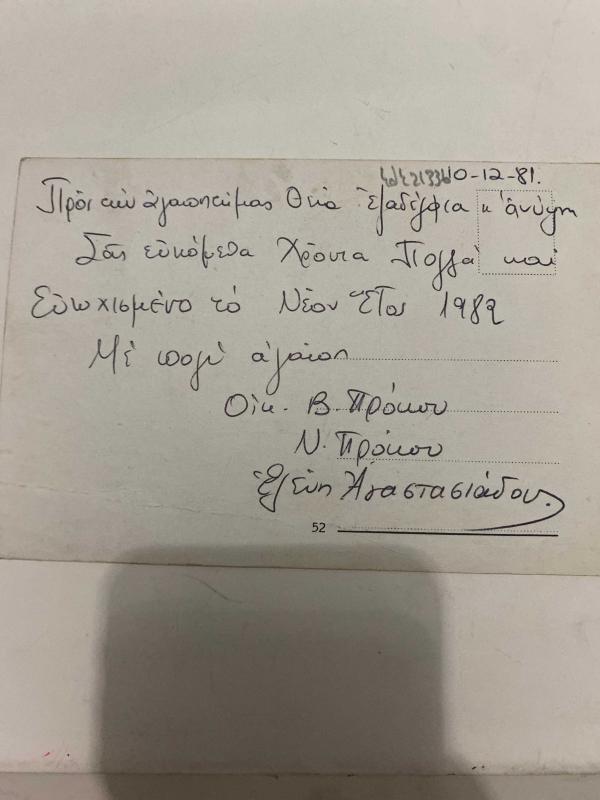 10-12-81.
Πρὸς τὴν ἀγαπητήμας Θεία Ἐξαδέλφια κ' ἀνύψη
Σᾶς εὐχόμεθα Χρόνια Πολλὰ καὶ
Εὐτυχισμένο τό Νέον Ἔτος 1982
Μέ πολὺ ἀγάπη
Οἰκ. Β. Πρόκου
Ν. Πρόκου
Ἑλένη Ἀναστασιάδου.
52